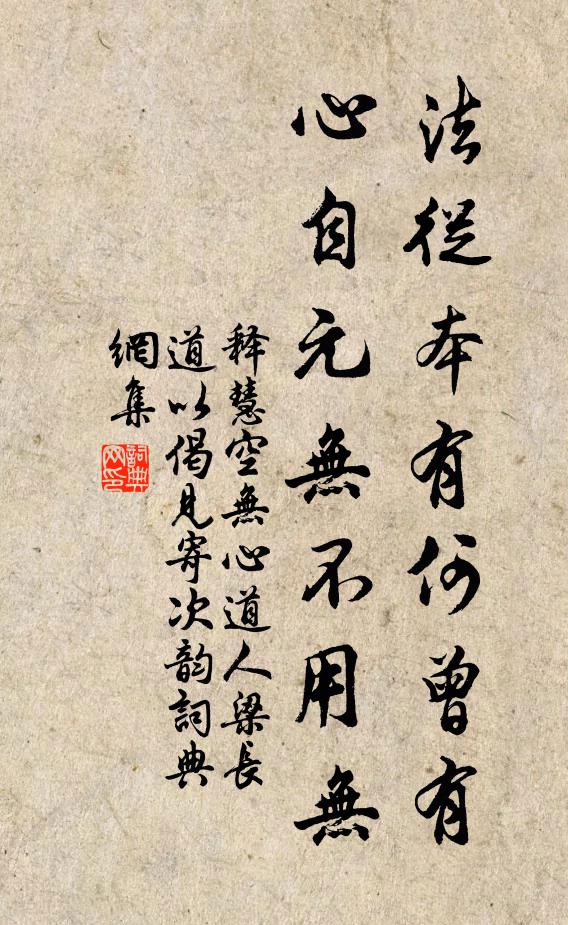 法從本有何曾有
心自元無不用無
释慧空無心道人梁長
道以偈見寄次韵詞典
網集
詞典
网印